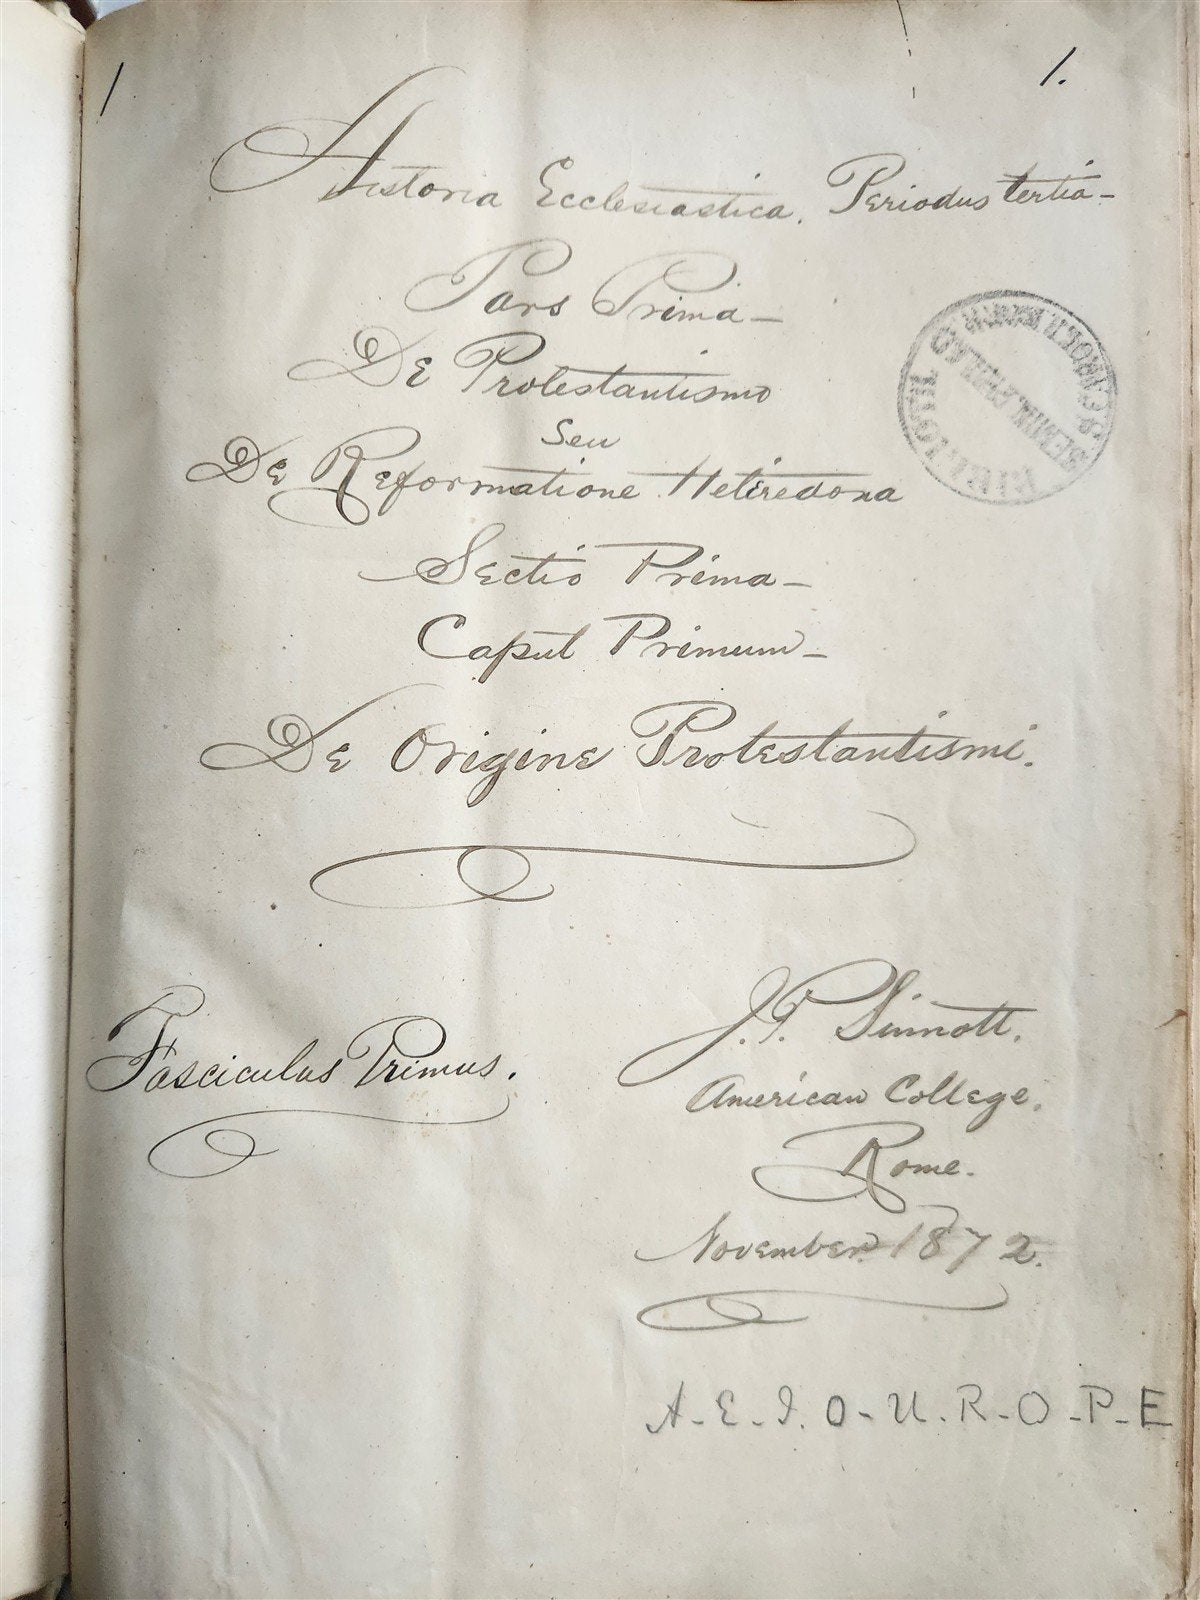 1 1.
Historia Ecclesiastica. Periodus tertia-
Pars Prima-
De Protestantismo
Seu
De Reformatione Heteredoxa
Sectio Prima-
Caput Primum-
De Origine Protestantismi.
Fasciculus Primus.
J.P. Sinnott.
American College.
Rome.
November 1872.
A-E-I.O-U.R-O-P-E